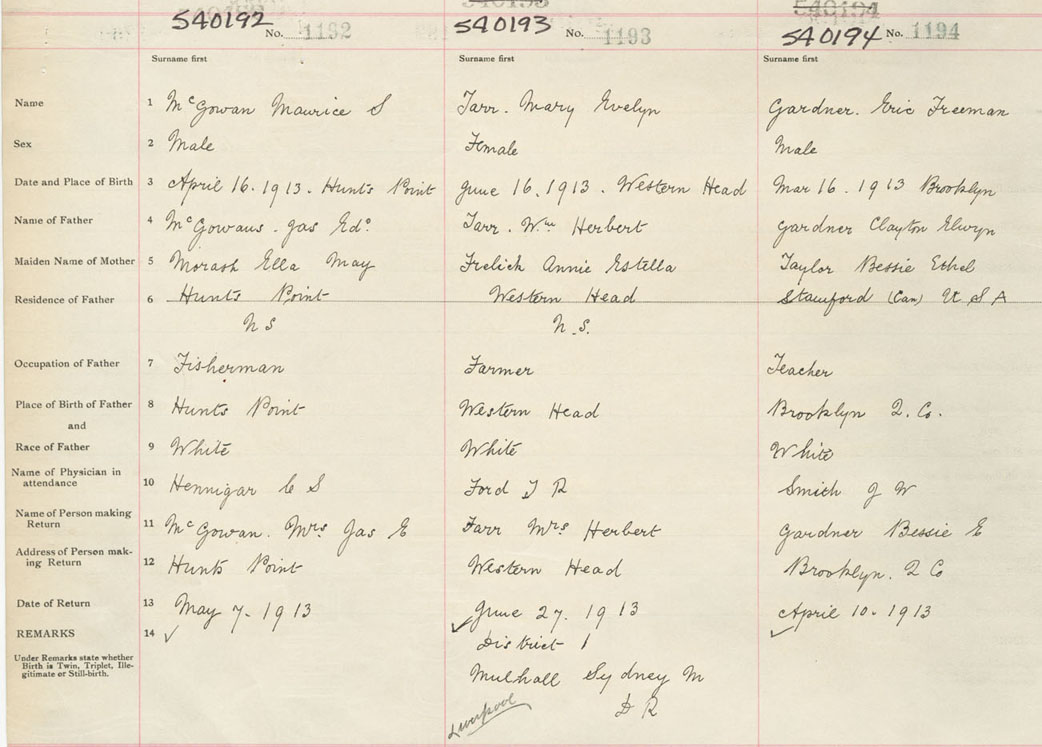 540192 No. 1192 540193 No. 1193 540194 No. 1194
Surname first Surname first Surname first
Name 1 McGowan Maurice S Tarr. Mary Evelyn Gardner. Eric Freeman
Sex 2 Male Female Male
Date and Place of Birth 3 April 16. 1913. Hunts Point June 16. 1913. Western Head Mar 16. 1913 Brooklyn
Name of Father 4 McGowans. Jas Edd Tarr. Wm Herbert Gardner Clayton Elwyn
Maiden Name of Mother 5 Morash Ella May Frelick Annie Estella Taylor Bessie Ethel
Residence of Father 6 Hunts Point Western Head Stamford (Can) U S A
N S N.S.
Occupation of Father 7 Fisherman Farmer Teacher
Place of Birth of Father 8 Hunts Point Western Head Brooklyn Q. Co.
and
Race of Father 9 White White White
Name of Physician in
attendance 10 Hennigar C S Ford T R Smith J W
Name of Person making
Return 11 McGowan. Mrs Jas E Tarr Mrs Herbert Gardner Bessie E
Address of Person mak-
ing Return 12 Hunts Point Western Head Brooklyn. Q Co
Date of Return 13 May 7. 1913 June 27. 1913 April 10. 1913
REMARKS 14 ✓ ✓ District 1 ✓
Under Remarks state whether
Birth is Twin, Triplet, Ille-
gitimate or Still-birth.
Mulhall Sydney M
D R
Liverpool